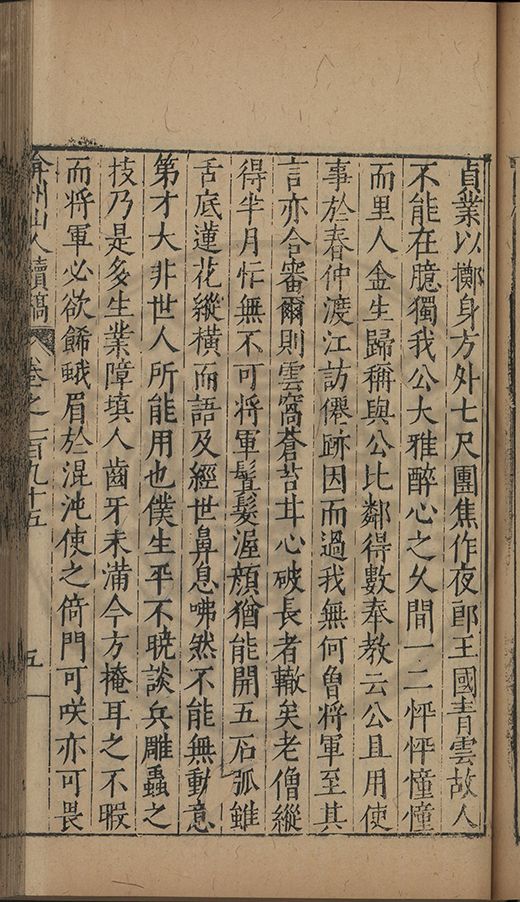 貞業以擲身方外七尺團焦作夜郎王國青雲故人
不能在臆獨我公大雅醉心之久間一二怦怦憧憧
而里人金生歸稱與公比鄰得數奉教云公且用使
事於春仲渡江訪僊跡因而過我無何魯將軍至其
言亦合審爾則雲窩蒼苔甘心破長者轍矣老僧縱
得半月忙無不可將軍鬒髮渥顔猶能開五石弧雖
舌底蓮花縱橫而語及經世鼻息咈然不能無動意
第才大非世人所能用也僕生平不曉談兵雕蟲之
技乃是多生業障填人齒牙未滿今方掩耳之不暇
而將軍必欲餙蛾眉於混沌使之倚門可咲亦可畏
弇州山人續稿 卷之一百九十五 五